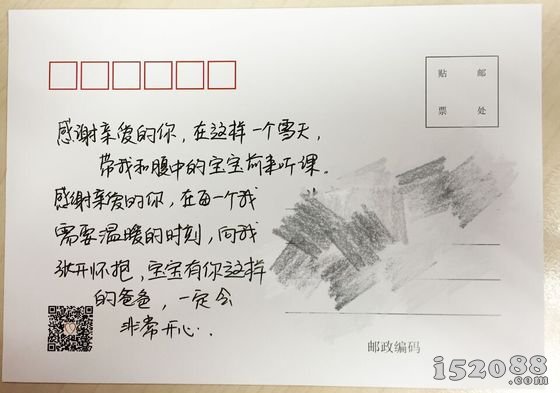 贴 邮
票 处
感谢亲爱的你，在这样一个雪天，
带我和腹中的宝宝前来听课。
感谢亲爱的你，在每一个我
需要温暖的时刻，向我
张开怀抱，宝宝有你这样
的爸爸，一定会
非常开心．
邮政编码
i52088
.com